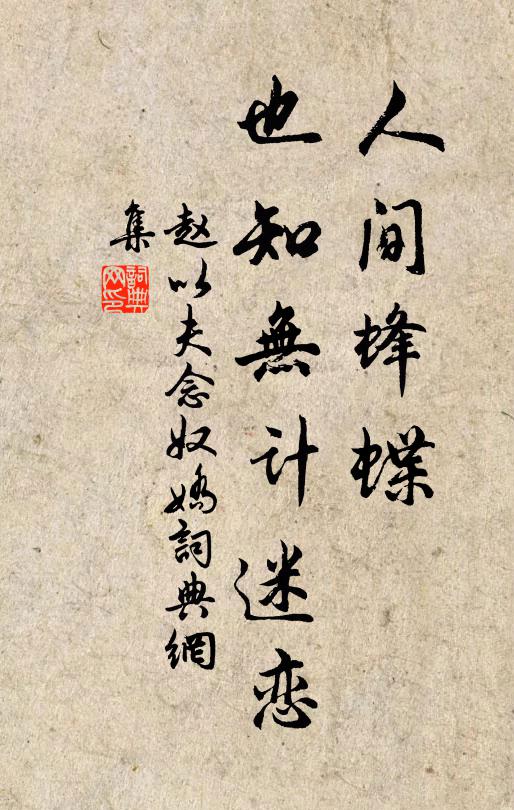 人间蜂蝶
也知無计迷恋
赵以夫念奴嬌詞典網
集
詞典
网印